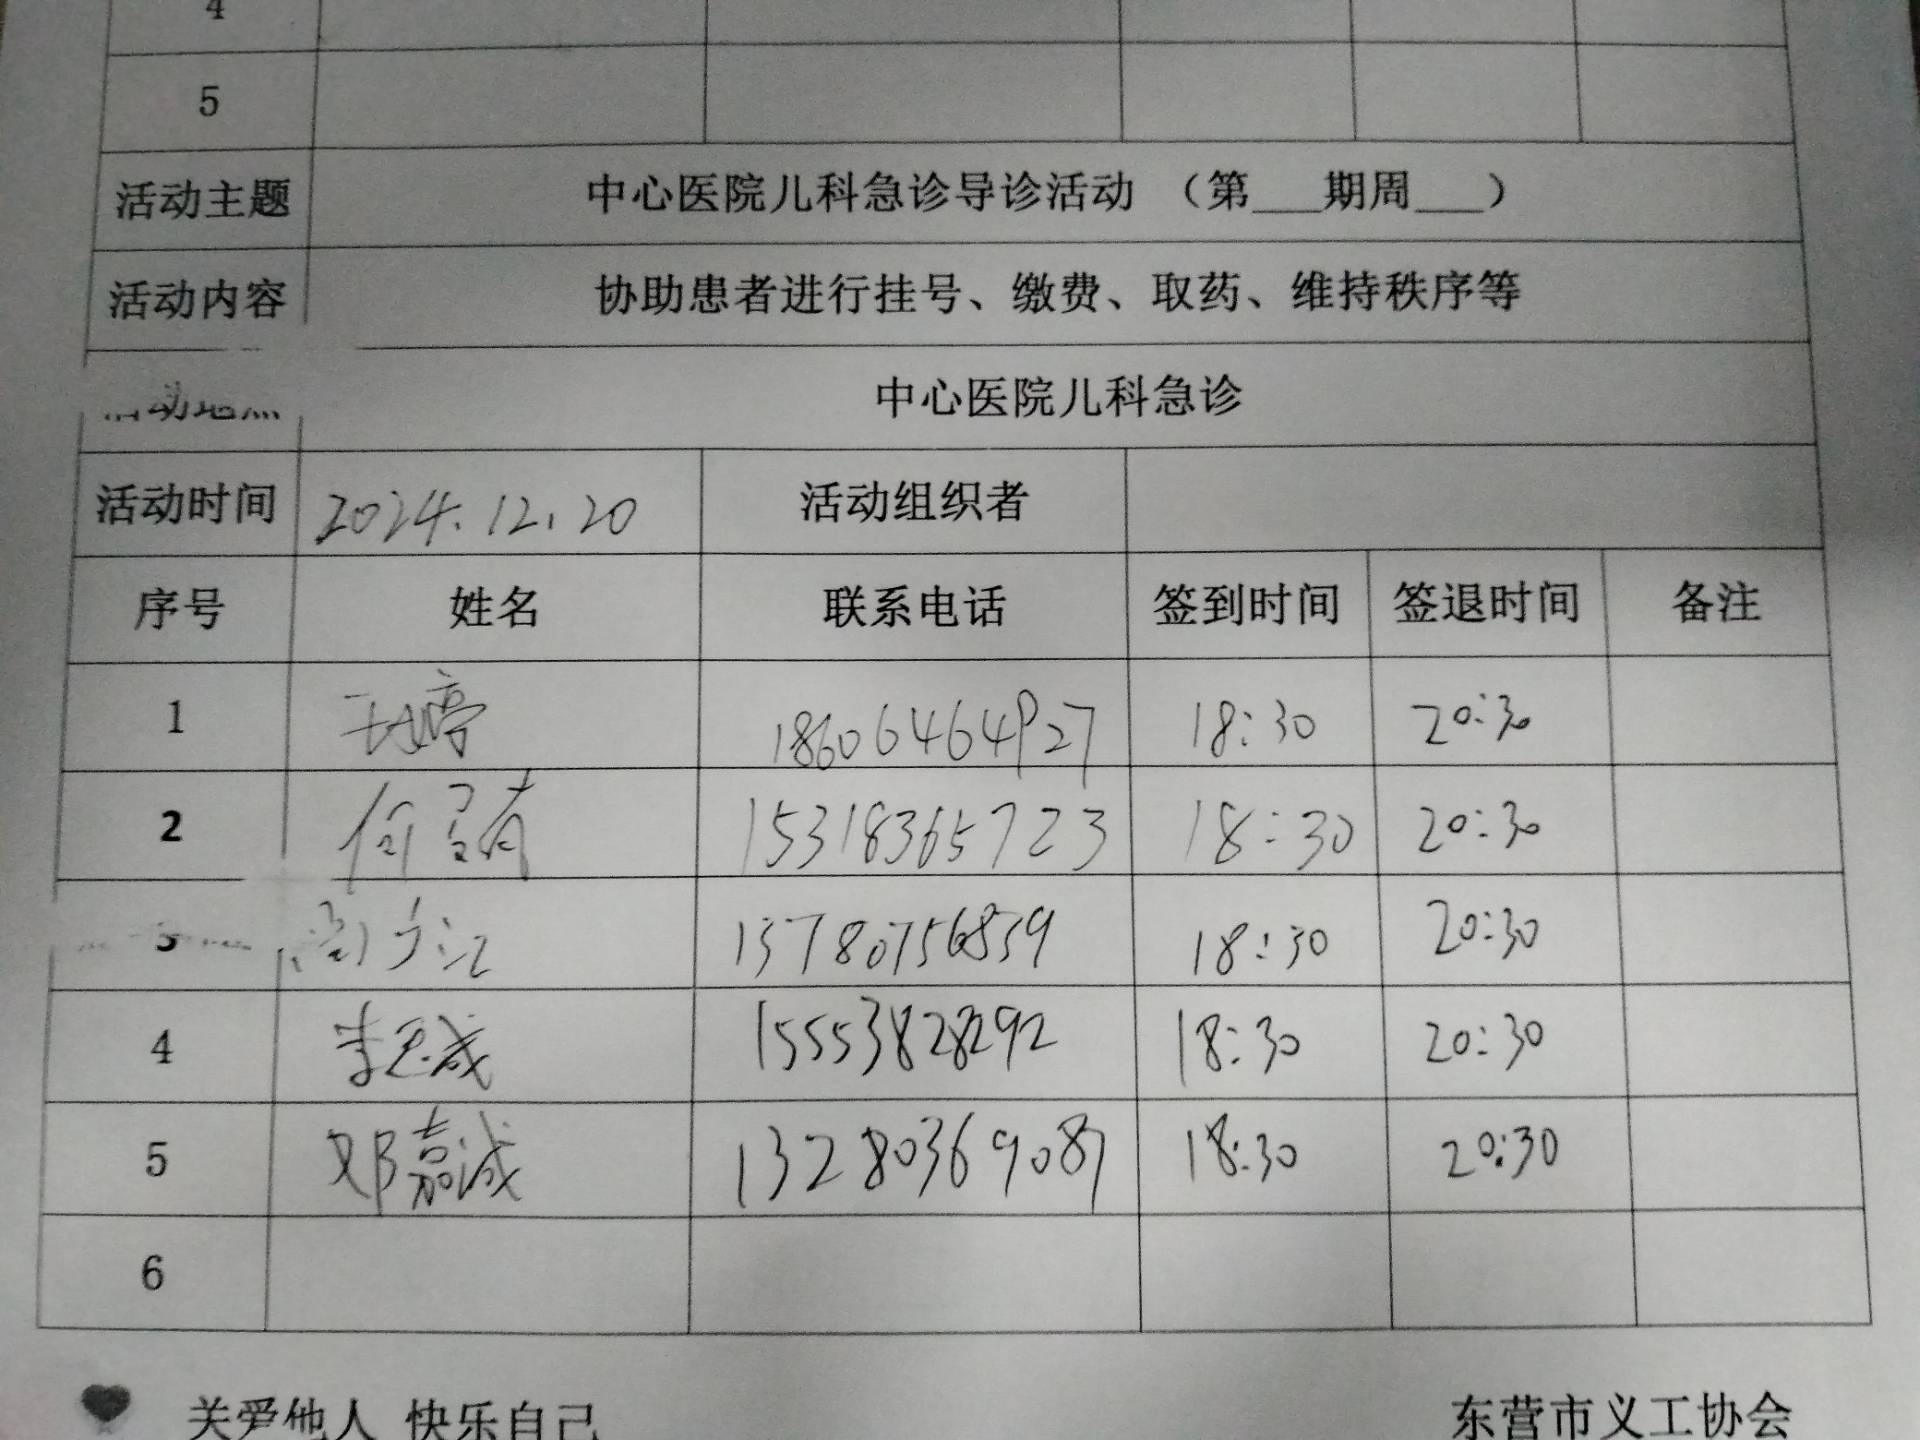 4
5
活动主题 中心医院儿科急诊导诊活动 （第___期周___）
活动内容 协助患者进行挂号、缴费、取药、维持秩序等
活动地点 中心医院儿科急诊
活动时间 2024.12.20 活动组织者
序号 姓名 联系电话 签到时间 签退时间 备注
1 18606464927 18:30 20:30
2 15318365723 18:30 20:30
3 13780756859 18:30 20:30
4 15553828292 18:30 20:30
5 邓嘉诚 13280369087 18:30 20:30
6
关爱他人 快乐自己 东营市义工协会